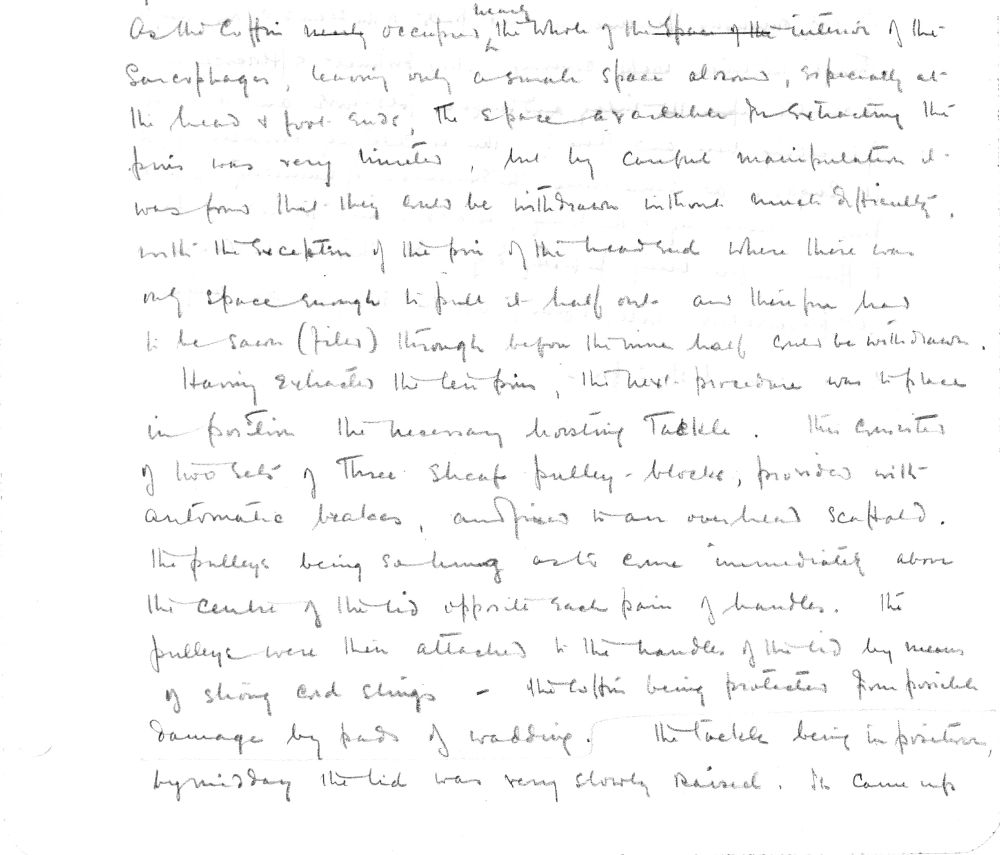 As the Coffin nearly occupied nearly the whole of the space of the interior of the
Sarcophagus, leaving only a small space around, especially at
the head & foot ends, the space available for extracting the
pins was very limited, but by careful manipulation it
was found that they could be withdrawn without much difficulty,
with the exception of the pin of the head end where there was
only space enough to pull it half out and therefore had
to be sawn (filed) through before the inner half could be withdrawn.
Having extracted the ten pins, the next procedure was to place
in position the necessary hoisting Tackle. This consisted
of two sets of three sheaf pulley-blocks, provided with
automatic brakes, and fixed to an overhead scaffold.
The pulleys being so hung as to come immediately above
the centre of the lid opposite each pair of handles. The
pulleys were then attached to the handles of the lid by means
of strong cord slings - the Coffin being protected from possible
damage by pads of wadding. The tackle being in position,
by midday the lid was very slowly raised. It came up